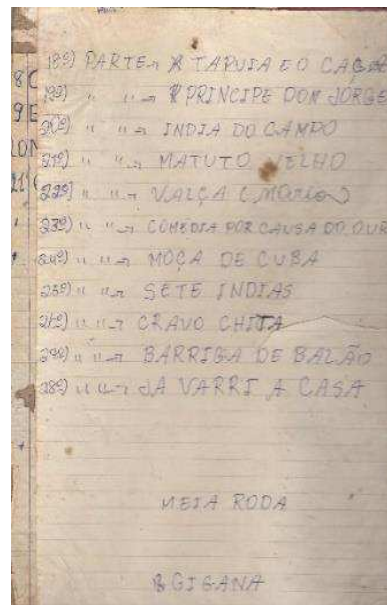 18º) PARTE → A TAPUIA E O CAÇADOR
19º) " " → PRINCIPE DON JORGE
20º) " " → INDIA DO CAMPO
21º) " " → MATUTO VELHO
22º) " " → VALÇA (Maria)
23º) " " → COMÉDIA POR CAUSA DO OURO
24º) " " → MOÇA DE CUBA
25º) " " → SETE INDIAS
26º) " " → CRAVO CHITA
27º) " " → BARRIGA DE BALÃO
28º) " " → JA VARRI A CASA
MEIA RODA
GIGANA